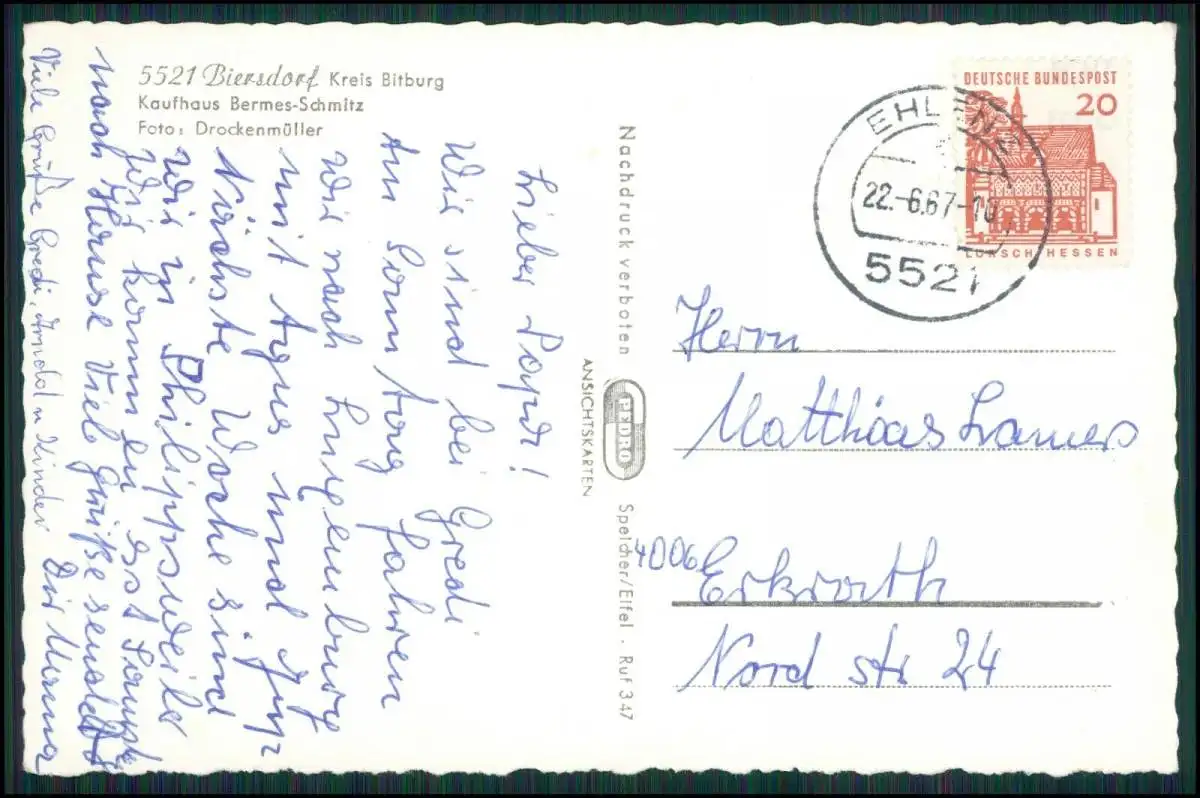 5521 Biersdorf Kreis Bitburg
Kaufhaus Bermes-Schmitz
Foto: Drockenmüller
Lieber Papa!
Wir sind bei Gredi
Am Sonntag fahren
wir nach Luxemburg
mit Agnes und Jup
Nächste Woche sind
wir in Philippsweiler
Wir kommen erst Samst
nach Hause Viele Grüße sendet
Dir Mama
Viele Grüße Gredi, Arnold u Kinder
Nachdruck verboten
ANSICHTSKARTEN
PEDRO
Speicher/Eifel · Ruf 347
DEUTSCHE BUNDESPOST
20
LORSCH HESSEN
EHLENZ
22.-6.67-10
5521
Herrn
Matthias Lamers
4006 Erkrath
Nord str 24